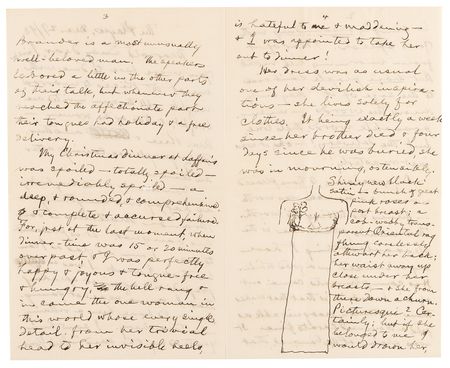 3
Brander is a most unusually
well-beloved man. The speakers
labored a little in the other parts
of their talk, but whenever they
reached the affectionate part
their tongues had holiday & a free
delivery.
My Christmas dinner at
was spoiled — totally spoiled —
irremediably spoiled — a
deep & rounded & comprehensive
& complete & accursed failure.
For, just at the last moment, when
dinner-time was 15 or 20 minutes
overpast & I was perfectly
happy & joyous & tongue-free
& hungry, the bell rang &
in came the one woman in
this world whose every single
detail, from her trivial
head to her invisible heels,
is hateful to me & maddening —
& I was appointed to take her
out to dinner!
Her dress was as usual
one of her devilish inspira-
tions — she lives solely for
clothes. It being exactly a week
since her brother died & four
days since he was buried, she
was in mourning, ostensibly.
Shiny new black
satin; bunch of great
pink roses a-
port breast; a
cob-webby trans-
parent Oriental rag
flung carelessly
athwart her back;
her waist away up
close under her
breasts — & she from
there down a churn.
Picturesque? Cer-
tainly; but if she
belonged to me I
would drown her.